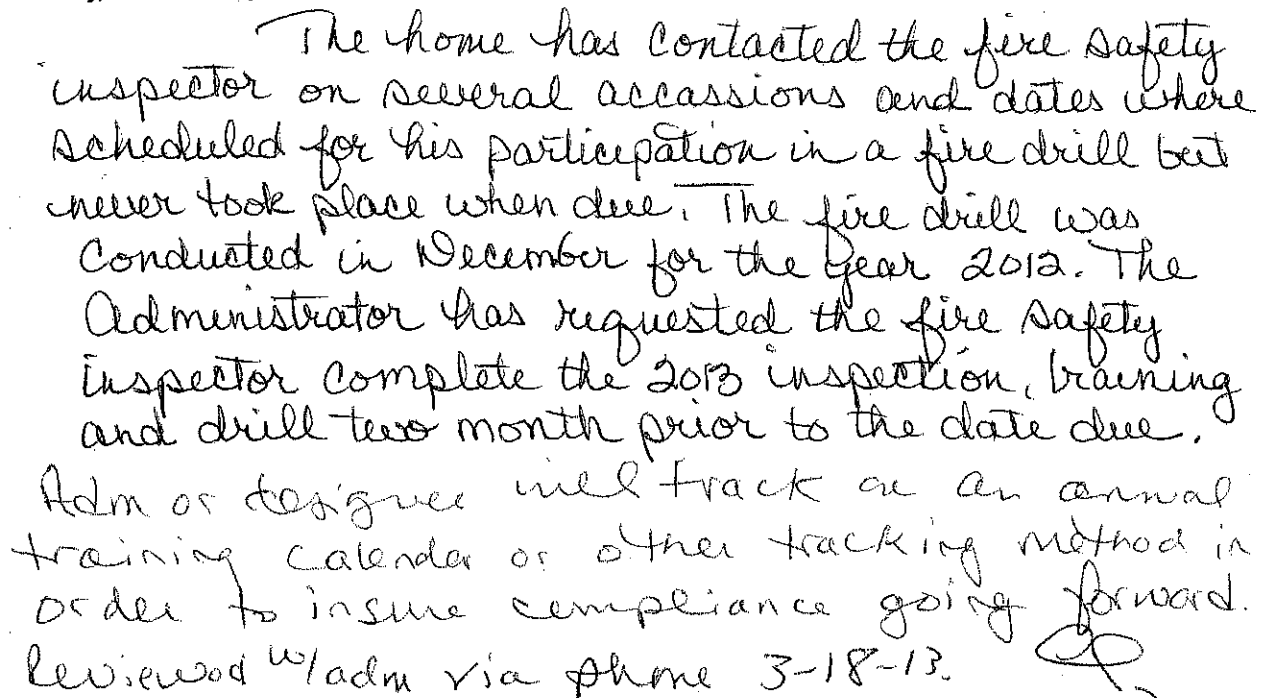 The home has contacted the fire safety
inspector on several accassions and dates where
scheduled for his participation in a fire drill but
never took place when due. The fire drill was
conducted in December for the year 2012. The
Administrator has requested the fire safety
inspector complete the 2013 inspection, training
and drill two month prior to the date due.
Adm or designee will track on an annual
training calendar or other tracking method in
order to insure compliance going forward.
Reviewed w/adm via phone 3-18-13.